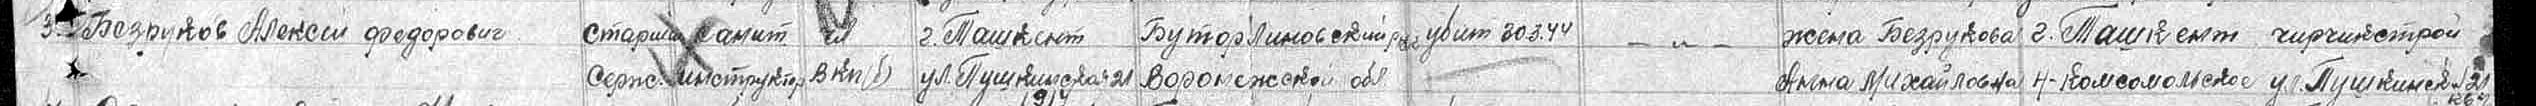 3. Безруков Алексей Федорович Старший Санит. чл г. Ташкент Бутурлиновский р-н убит 30.3.44 — „ — жена Безрукова г. Ташкент чирчикстрой
Серж. инструктор ВКП(б) ул. Пушкинская 21 Воронежской обл Анна Михайловна Н-Комсомольское ул. Пушкинск. 21
кв 4